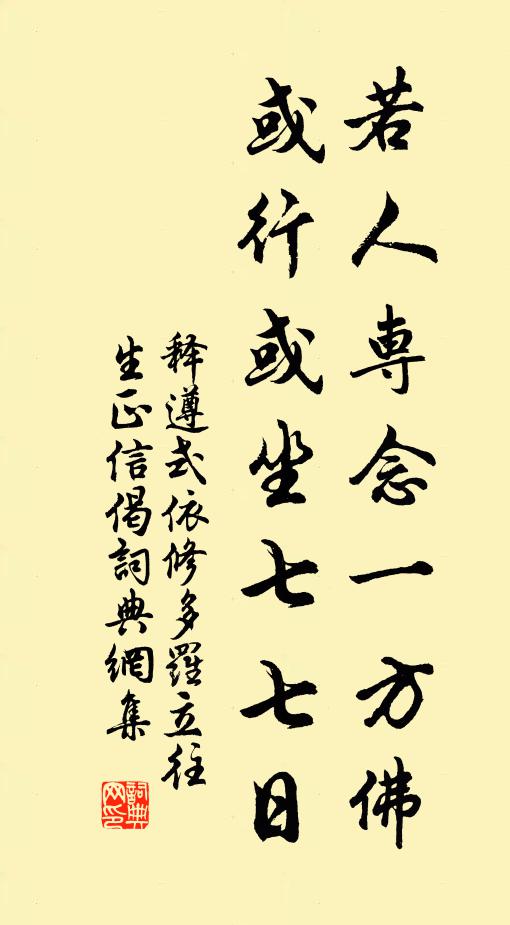 若人専念一方佛
或行或坐七七日
释遵式依修多羅立往
生正信偈詞典網集
詞典网印